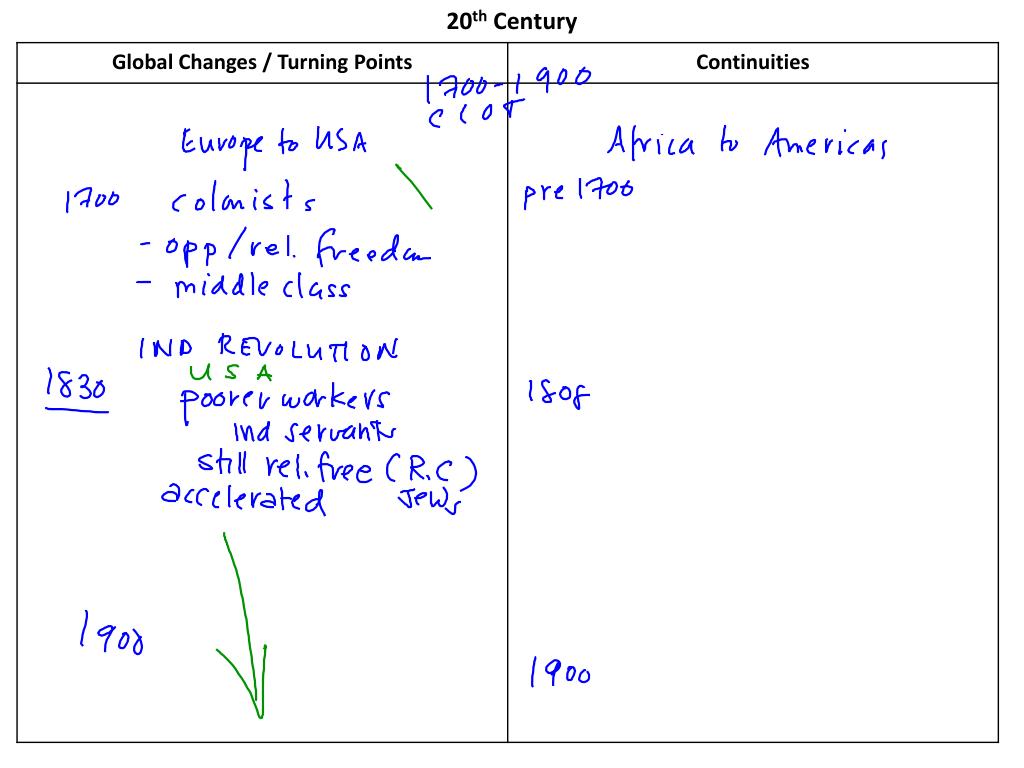 20th Century
Global Changes / Turning Points
Continuities
1700-1900
CCOT
Europe to USA
1700 colonists
- opp/rel. freedom
- middle class
IND REVOLUTION
USA
1830 poorer workers
ind servants
still rel. free (R.C)
accelerated Jews
1900
Africa to Americas
pre 1700
1808
1900